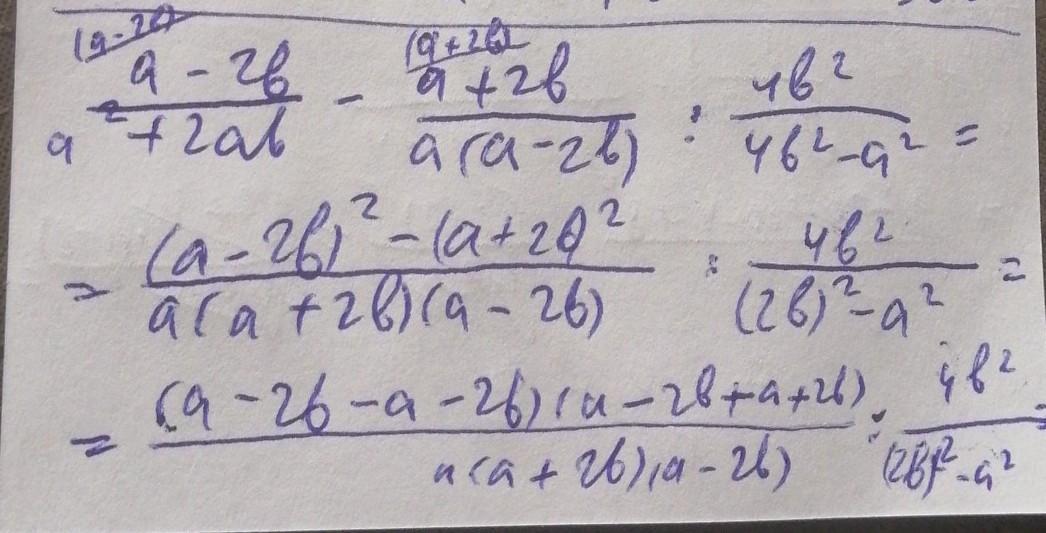 (a-2b) (a+2b)
\frac{a-2b}{a^2+2ab} - \frac{a+2b}{a(a-2b)} : \frac{4b^2}{4b^2-a^2} =
= \frac{(a-2b)^2-(a+2b)^2}{a(a+2b)(a-2b)} : \frac{4b^2}{(2b)^2-a^2} =
= \frac{(a-2b-a-2b)(a-2b+a+2b)}{a(a+2b)(a-2b)} : \frac{4b^2}{(2b)^2-a^2} =